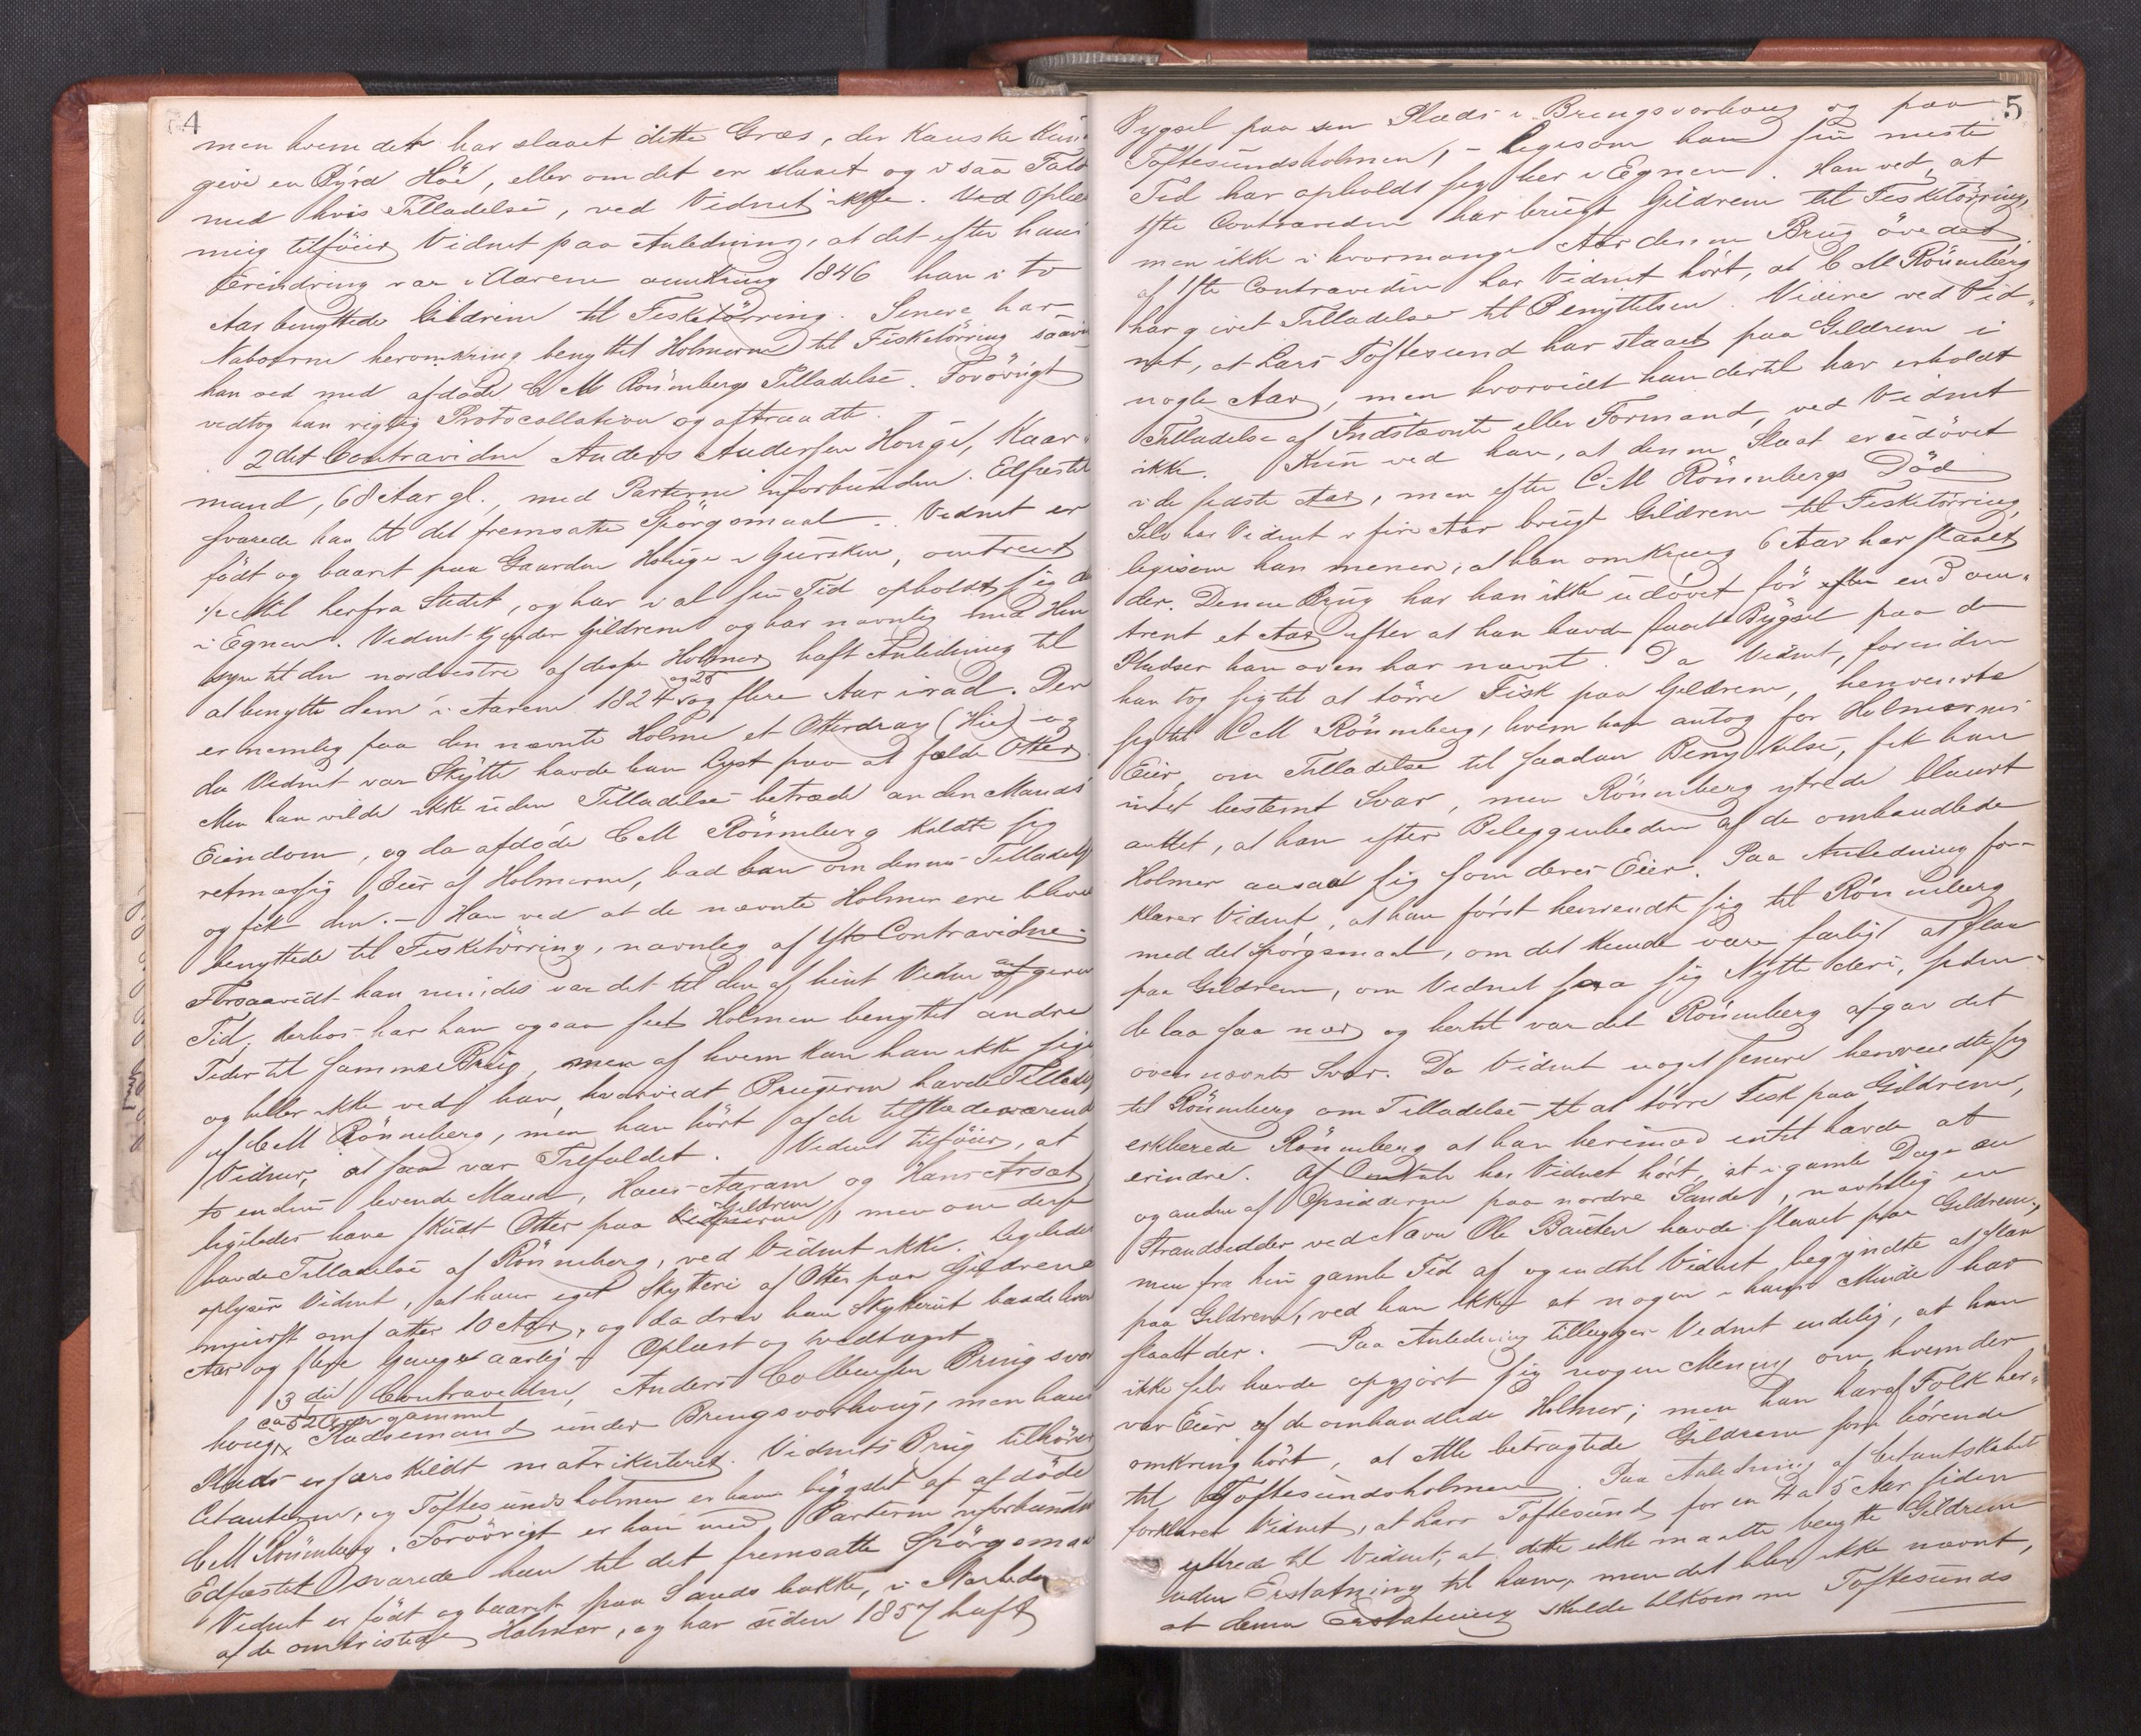 4
men hvem det har slaaet dette Græs, der Kanske Kun
give en Byrd Höe, eller om det er slaaet og i saa Fald
med hvis Tilladelse, ved Vidnet ikke. Ved Oplæs
ning tilföier Vidnet paa Anledning, at det efter hans
Erindring var i Aarene omkring 1846 han i to
Aar benyttede Gildrene til Fisketörring. Senere har
Naboerne heromkring benyttet Holmerne til Fisketörring saavidt
han ved med afdöde C M Rönnebergs Tilladelse. Forövrigt
vedtog han rigtig Protocollation og aftraadte.
2det Contravidne Anders Andersen Houge, Kaar-
mand, 68 Aar gl., med Parterne uforbunden. Edfæstet
svarede han til det fremsatte Spörgsmaal. Vidnet er
födt og baaret paa Gaarden Houge i Gursken, omtrent
½ Mil herfra Stedet, og har i al sin Tid opholdt sig der
i Egnen. Vidnet Kjender Gildrene og har navnlig med Hen
syn til den nordvestre af disse Holmer haft Anledning til
at benytte dem i Aarene 1824 og 25 og flere Aar irad. Der
er nemlig paa den nævnte Holme et Otterdrag (Hie) og
da Vidnet var Skytte havde han Lyst paa at fælde Otter.
Men han vilde ikke uden Tilladelse betræde anden Mands
Eiendom, og da afdöde C M Rönneberg kaldte sig
retmæssig Eier af Holmerne, bad han om dennes Tilladelse
og fik den. - Han ved at de nævnte Holmer ere blevne
benyttede til Fisketörring, navnlig af 1ste Contravidne.
Forsaavidt han mindes var det til den af hint Vidne angivne
Tid; derhos har han ogsaa seet Holmen benyttet andre
Tider til samme Brug, men af hvem Kan han ikke sige
og heller ikke ved han, hvorvidt Brugerne havde Tilladelse
af C M Rönneberg, men han hört af de tilstedeværende
Vidner, at saa var Tilfældet. Vidnet tilföier, at
to endnu levende Mænd, Hans Aaram og Hans Arsæt
ligeledes have skudt Otter paa Gildrene, men om disse
havde Tilladelse af Rönneberg, ved Vidnet ikke. Ligeledes
oplyser Vidnet, at hans eget Skytteri af Otter paa Gildrene
 atter 10 Aar, og da drev han Skytteriet baade hver
Aar og flere Gange aarlig. - Oplæst og vedtaget.
3die Contravidne, Anders Colbensen Bringsvor
houg, ca 52 Aar gammel Pladsemand under Bringsvorhoug, men hans
Plads er særskildt matrikuleret. Vidnets Brug tilhörer
Citanterne, og Toftesundsholmen er ham bygslet af afdöde
C M Rönneberg. Forövrigt er han med Parterne uforbunden
Edfæstet svarede han til det fremsatte Spörgsmaal
Vidnet er födt og baaret paa Sandsbakke, i Nærheden
af de omtvistede Holmer, og har siden 1857 haft
5
Bygsel paa sin Plads i Bringsvorhoug og paa
Toftesundsholmen, - ligesom han sin meste
Tid har opholdt sig her i Egnen. Han ved, at
1ste Contravidne har brugt Gildrene til Fisketörring,
men ikke i hvormange Aar denne Brug övedes
af 1ste Contravidne har Vidnet hört, at C M Rönneberg
har givet Tilladelse til Benyttelsen. Videre ved Vid-
net, at Lars Toftesund har slaaet paa Gildrene i
nogle Aar, men hvorvidt han dertil har erholdt
Tilladelse af Indstævnte eller Formand, ved Vidnet
ikke. Kun ved han, at denne Slaat er udövet
i de sidste Aar, men efter C. M Rönnebergs Död
Selv har Vidnet i fire Aar brugt Gildrene til Fisketörring,
ligesom han mener, at han omkring 6 Aar har slaaet
der. Denne Brug har han ikke udövet för end om-
trent et Aar efter at han havde faaet Bygsel paa de
Pladser han oven har nævnt. Da Vidnet, forinden
han tog sig til at törre Fisk paa Gildrene, henvendte
sig til C M Rönneberg, hvem han antog for Holmernes
Eier, om Tilladelse til saadan Benyttelse, fik han
intet bestemt Svar, men Rönneberg ytrede blandt
andet, at han efter Beliggenheden af de omhandlede
Holmer ansaa sig som deres Eier. Paa Anledning for-
klarer Vidnet, at han först henvendte sig til Rönneberg
med det Spörgsmaal, om det Kunde være farligt at slaa
paa Gildrene, om Vidnet saa sig Nytte deri, siden
de laa saa nær og hertil var det Rönneberg afgav det
ovennævnte Svar. Da Vidnet noget senere henvendte sig
til Rönneberg om Tilladelse til at törre Fisk paa Gildrene,
erklærede Rönneberg at han herimod intet havde at
erindre. Af har Vidnet hört, at i gamle Dage en
og anden af Opsidderne paa nordre Sande, navnlig en
Strandsidder ved Navn Ole havde slaaet paa Gildrene,
men fra hin gamle Tid af og indtil Vidnet begyndte at slaa
paa Gildrene, ved han ikke at nogen i hans Minde har
slaaet der. - Paa Anledning tillægger Vidnet endelig, at han
ikke selv havde opgjort sig nogen Mening om, hvem der
var Eier af de omhandlede Holmer; men han har af Folk her-
omkring hört, at Alle betragtede Gildrene som hörende
til Toftesundsholmen. Paa Anledning af Citantskabet
forklarer Vidnet, at Lars Toftesund for en 4 a 5 Aar siden
yttrede til Vidnet, at dette ikke maatte benytte Gildrene
uden Erstatning til ham, men det blev ikke nævnt,
at denne Erstatning skulde tilkomme Toftesunds